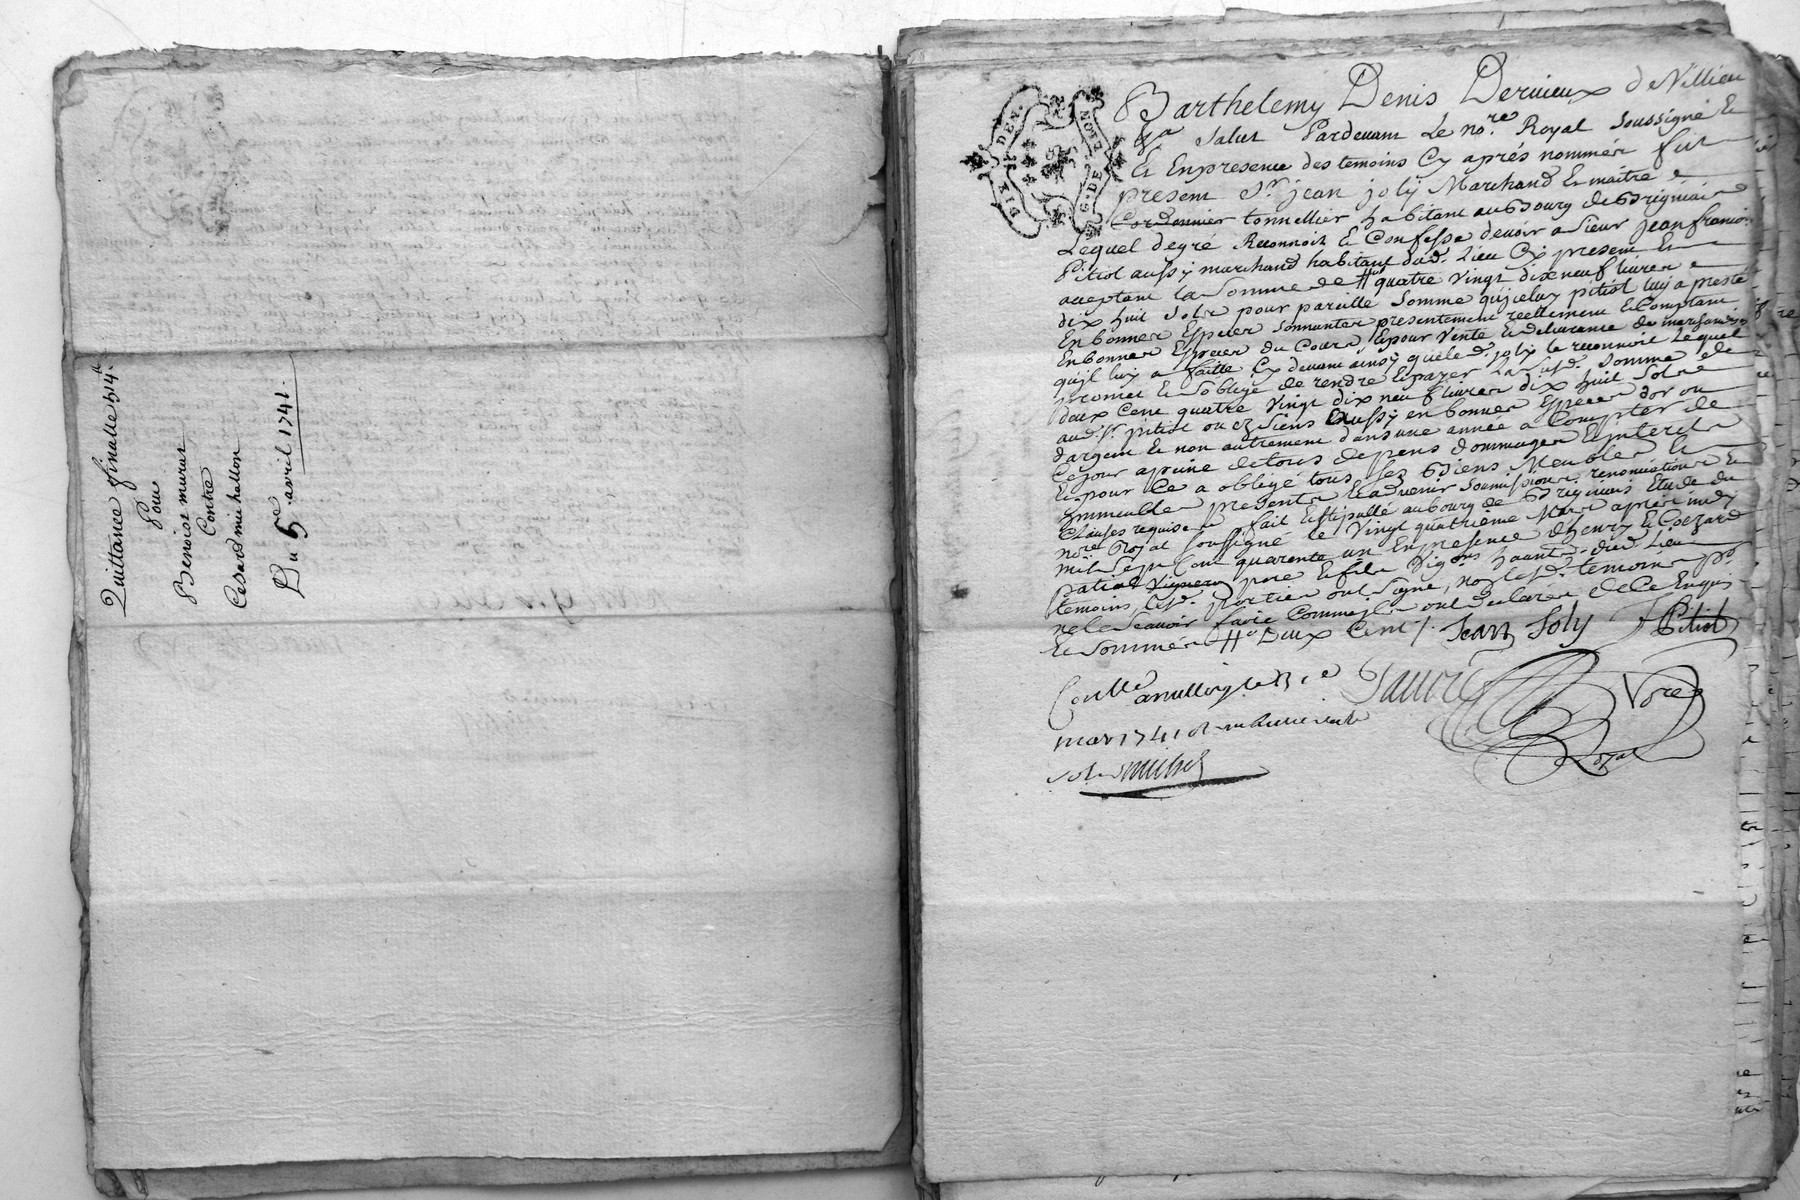 Quittance finalle 54#
Pour
Benoist murat
Contre
Cesard michallon
Du 5e avril 1741.
DIX DEN.
G. DE LYON
Barthelemy Denis Dervieux de Villieu
Salut Pardevant Le nore Royal soussigné &
& En presence des temoins Cy aprés nommés fut
present Sr jean joly Marchand & maitre
Cordonnier tonnellier habitant au Bourg de Brignais
Lequel de gré Reconnoit & Confesse devoir a Sieur jean francois
Pitiot aussy marchand habitant dud. Lieu Cy present &
acceptant la Somme de # quatre vingt dix neuf livres
dix huit sols pour pareille somme qu'jceluy pitiot luy a presté
En bonnes Especes sonnantes presentement reellement & Comptant
En bonnes Especes du Cours & pour Vente & delivrance de marchandises
qu'jl luy a faitte Cy devant ainsy que led. joly le reconnoit Lequel
promet & s'oblige de rendre & payer lasusd. somme de
deux Cent quatre vingt dix neuf livres dix huit sols
aud. Sr. pitiot ou ez siens aussy en bonnes Especes dor ou
d'argent & non autrement dans une année a Compter de
Ce jour a peine de tous depens dommages & interets
& pour Ce a obligé tous ses Biens Meubles &
jmmeubles presents & advenir soumissions renonciations &
Clauses requises fait & stipullé au bourg de Brignais Etude du
nore Royal soussigné le vingt quatrieme Mars aprés midy
mil sept Cent quarente un En presence d'henry &
pere & fils Vigrons hauts dud. Lieu
temoins, Lesd. parties ont signé, non lesd. temoins pr
ne le scavoir faire Comme jls ont declaré de Ce Enquis
& sommés # Deux Cent /. Jean Joly Pitiot
Conllé
mars 1741
sols michel
Royal